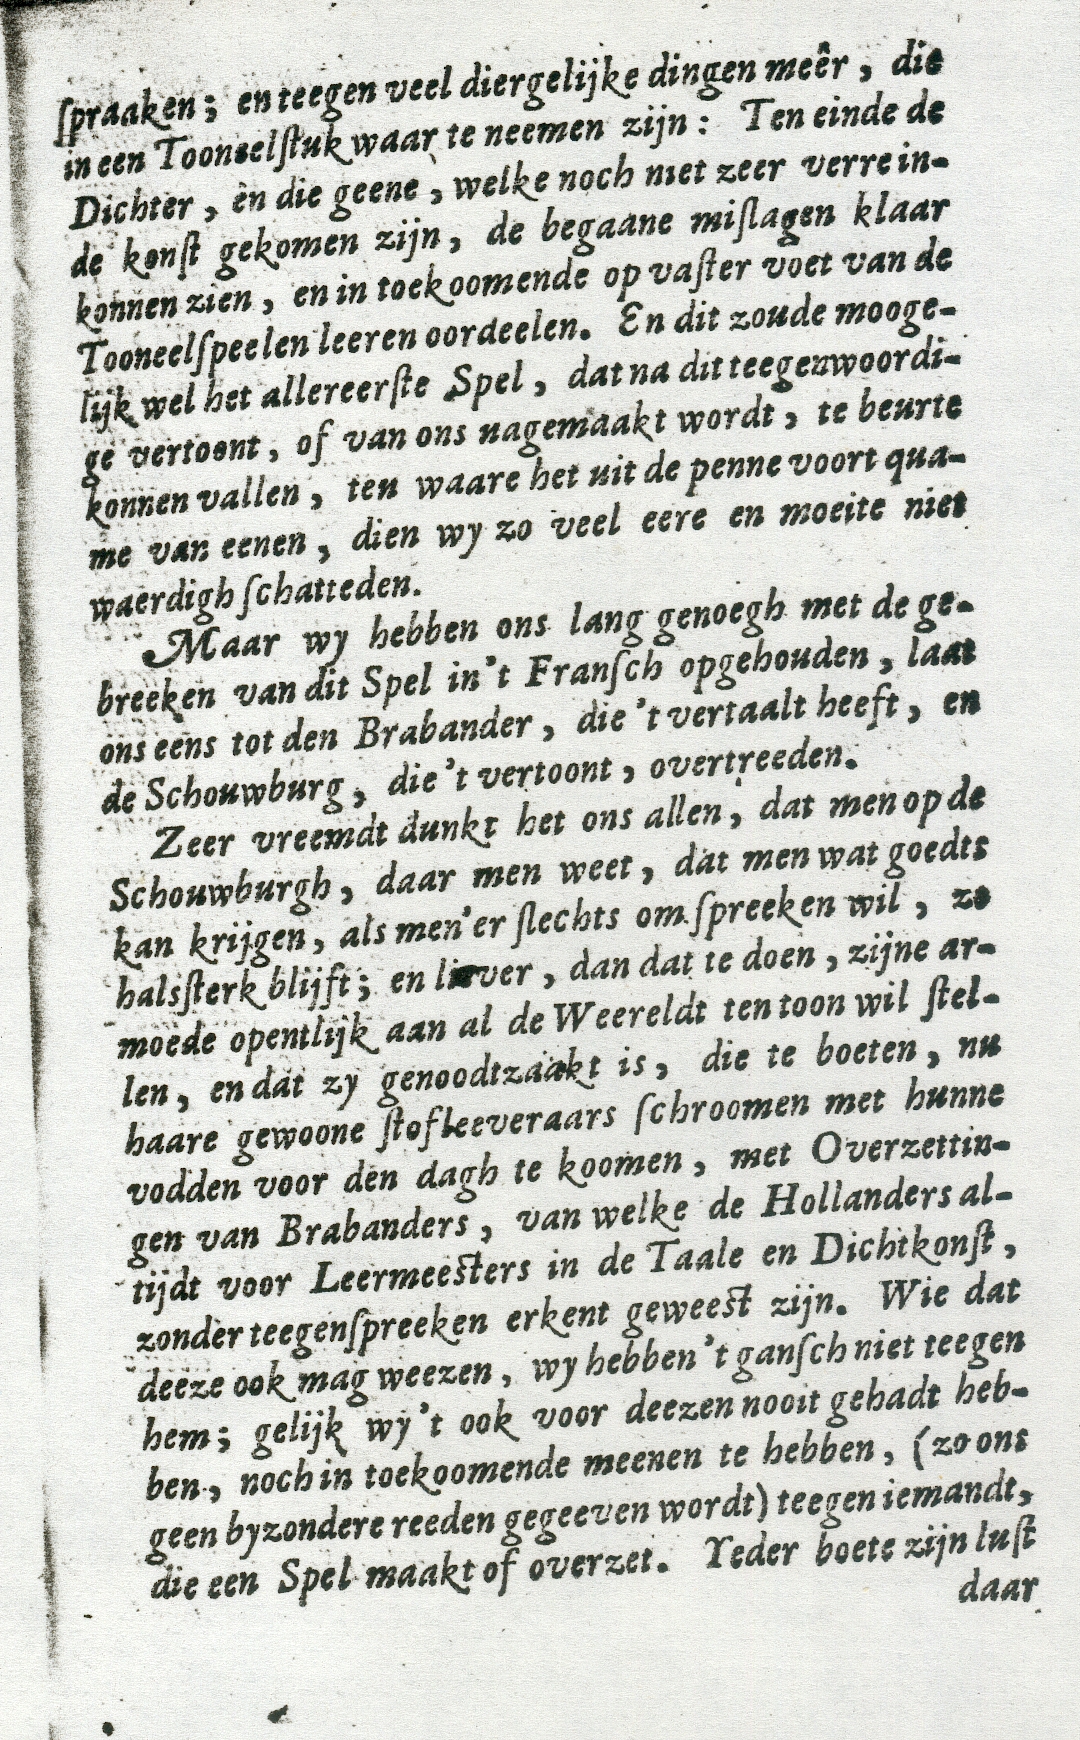 ſpraaken; en teegen veel diergelijke dingen meêr, die
in een Tooneelſtuk waar te neemen zijn: Ten einde de
Dichter, èn die geene, welke noch niet zeer verre in-
de konſt gekomen zijn, de begaane miſlagen klaar
konnen zien, en in toekoomende op vaſter voet van de
Tooneelſpeelen leeren oordeelen. En dit zoude mooge-
lijk wel het allereerſte Spel, dat na dit teegenwoordi-
ge vertoont, of van ons nagemaakt wordt, te beurte
konnen vallen, ten waare het uit de penne voort qua-
me van eenen, dien wy zo veel eere en moeite niet
waerdigh ſchatteden.
Maar wy hebben ons lang genoegh met de ge-
breeken van dit Spel in't Franſch opgehouden, laat
ons eens tot den Brabander, die 't vertaalt heeft, en
de Schouwburg, die 't vertoont, overtreeden.
Zeer vreemdt dunkt het ons allen, dat men op de
Schouwburgh, daar men weet, dat men wat goedts
kan krijgen, als men'er ſlechts om ſpreeken wil, zo
halsſterk blijft; en liever, dan dat te doen, zijne ar-
moede opentlijk aan al de Weereldt ten toon wil ſtel-
len, en dat zy genoodtzaakt is, die te boeten, nu
haare gewoone ſtofleeveraars ſchroomen met hunne
vodden voor den dagh te koomen, met Overzettin-
gen van Brabanders, van welke de Hollanders al-
tijdt voor Leermeeſters in de Taale en Dichtkonſt,
zonder teegenſpreeken erkent geweeſt zijn. Wie dat
deeze ook mag weezen, wy hebben 't ganſch niet teegen
hem; gelijk wy't ook voor deezen nooit gehadt heb-
ben, noch in toekoomende meenen te hebben, (zo ons
geen byzondere reeden gegeeven wordt) teegen iemandt,
die een Spel maakt of overzet. Yeder boete zijn luſt
daar